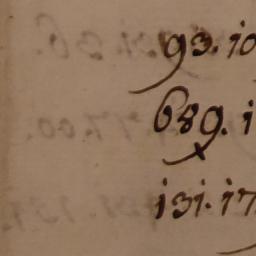 93. 10
689. 1
131. 17.